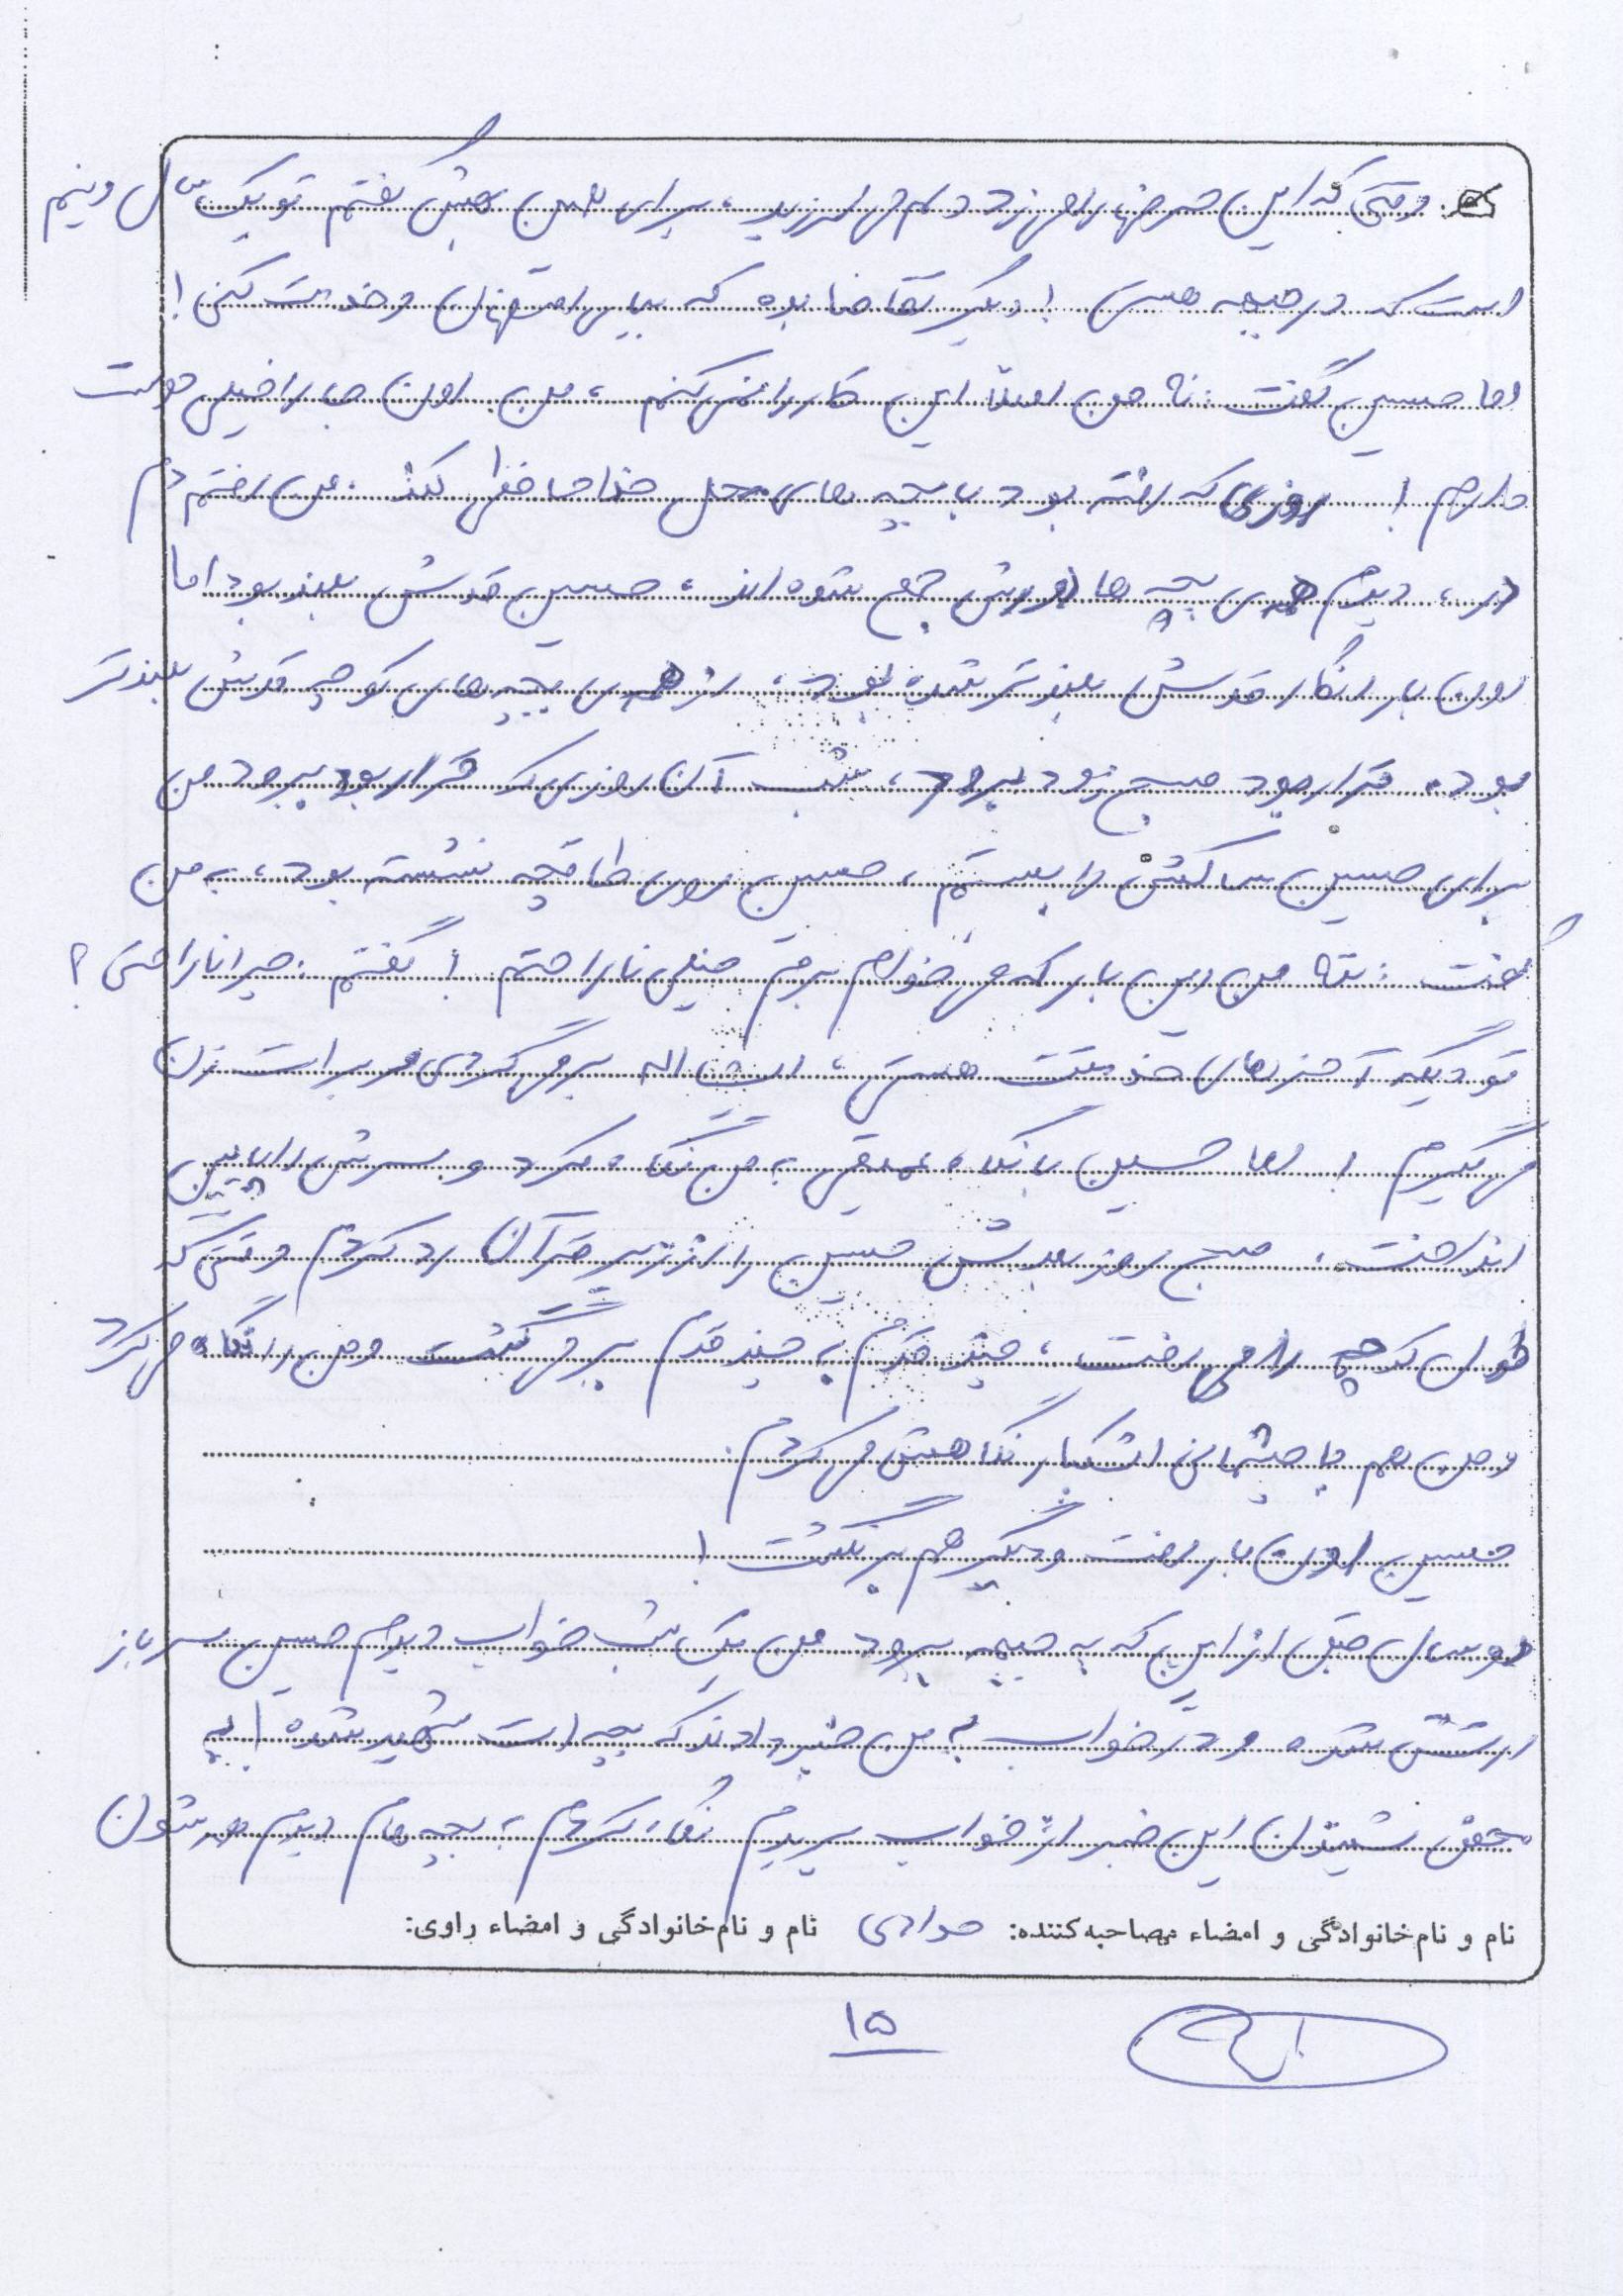 وقتی که این حرفها را می زد دلم می لرزید، برای همین بهش گفتم تو یک سال و نیم
است که در جبهه هستی! دیگر تقاضا بده که بیای اصفهان و خدمت کنی!
اما حسین گفت: نه من اصلاً این کار را نمی کنم، من اون جا را خیلی دوست
دارم! روزی که رفته بود با بچه های محل خداحافظی کند. من رفتم دم
در، دیدم همه ی بچه ها دورش جمع شده اند، حسین قدش بلند بود اما
اون بار انگار قدش بلندتر شده بود، از همه ی بچه های کوچه قدش بلندتر
بود. قرار بود صبح زود برود، شب آن روزی که قرار بود برود من
برای حسین ساکش را بستم، حسین روی طاقچه نشسته بود، به من
گفت: ننه من این بار که می خواهم برم خیلی ناراحتم! گفتم: چرا ناراحتی؟
تو دیگه آخرهای خدمتت هستی، انشااله برمی گردی و برات زن
می گیرم! اما حسین با نگاه عمیقی به من نگاه کرد و سرش را پایین
انداخت، صبح روز بعدش حسین را از زیر قرآن رد کردم وقتی که
طول کوچه را می رفت، چند قدم به چند قدم بر می گشت و من را نگاه می کرد
و من هم با چشمانی اشکبار نگاهش می کردم.
حسین اون بار رفت و دیگر هم برنگشت!
دو سال قبل از این که به جبهه برود من یک شب خواب دیدم حسین سرباز
ارتش شده و در خواب به من خبر دادند که بچه ات شهید شده! به
محض شنیدن این خبر از خواب پریدم نگاه کردم به بچه هام دیدم همه شون
نام و نام خانوادگی و امضاء مصاحبه کننده: نام و نام خانوادگی و امضاء راوی:
۱۵